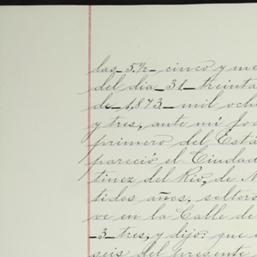 las 5½ cinco y me
del dia 31 treinta
de 1,873 mil och
y tres, ante mi
primero del Está
pareció el Ciudad
tinez del Rio, de
tidos años, soltero
ve en la Calle de
3 tres, y dijo: que
seis del presente